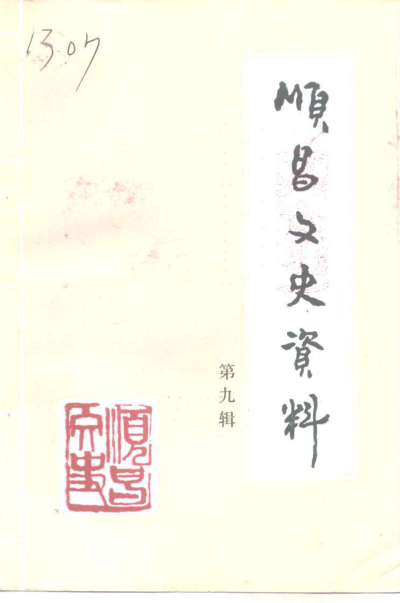 13.07
順昌文史資料
第九辑
順昌
文史